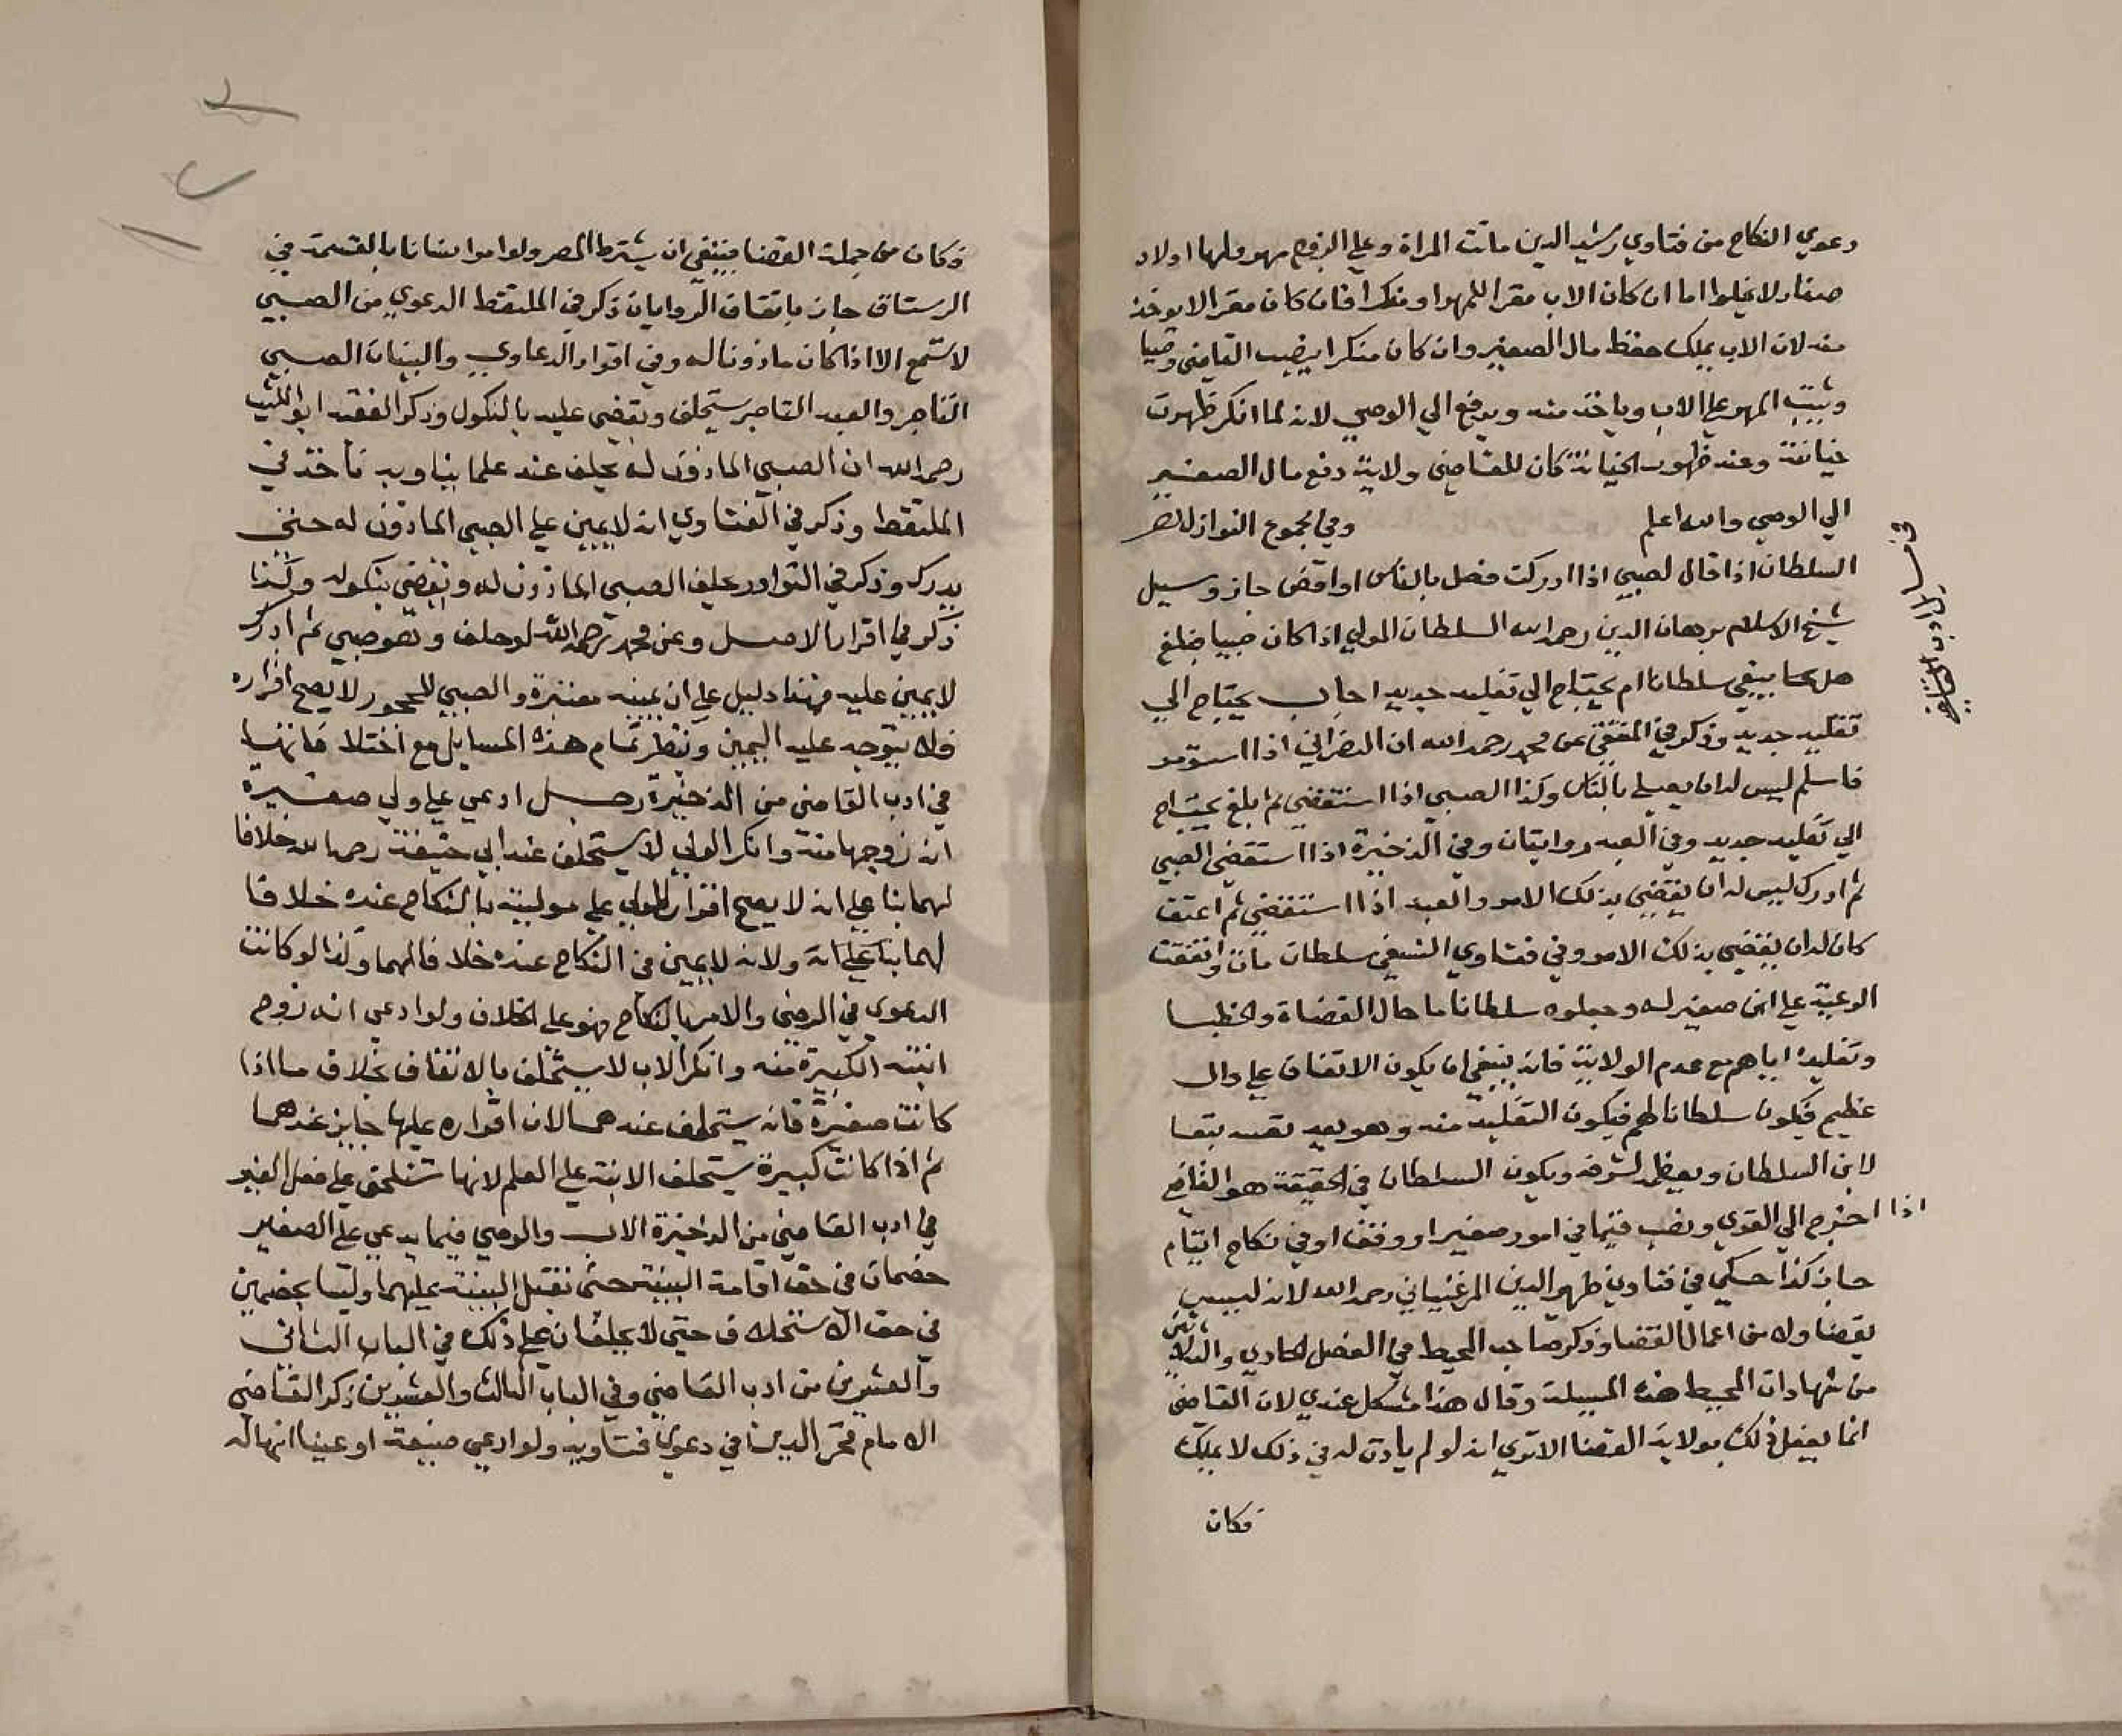 دعوي النكاح من فتاوي رشيد الدين ماتت المراة وعلي الزوج مهر ولها اولاد
صغار لا يخلوا اما ان كان الاب مقرا للمهر او منكرا فان كان مقرا لا يوخذ
منه لان الاب يملك حفظ مال الصغير وان كان منكرا ينصب القاضي وصيا
ويثبت المهر علي الاب وياخذ منه ويدفع الي الوصي لانه لما انكر ظهرت
خيانته وعند ظهور الخيانة كان للقاضي ولاية دفع مال الصغير
الي الوصي والله اعلم وفي مجموع النوازل
في مسايل ادب القاضي
السلطان اذا قال لصبي اذا ادركت فصل بالناس او اقض جاز وسيل
شيخ الاسلام برهان الدين رحمه الله السلطان المولي اذا كان صبيا فبلغ
هل يبقي سلطانا ام يحتاج الي تقليد جديد اجاب يحتاج الي
تقليد جديد وذكر في المنتقي عن محمد رحمه الله ان النصراني اذا استومر
فاسلم ليس له ان يصلي بالناس وكذا الصبي اذا استقضي ثم ابلغ يحتاج
الي تقليد جديد وفي العبد روايتان وفي الذخيرة اذا استقضي الصبي
ثم ادرك ليس له ان يقضي بذلك الامر والعبد اذا استقضي ثم اعتق
كان له ان يقضي بذلك الامر وفي فتاوي النسفي سلطان مات واتفقت
الرعية علي ابن صغير له وجعلوه سلطانا ما حال القضاة والخطبا
وتقليده اياهم مع عدم الولاية فانه ينبغي ان يكون الاتفاق علي وال
عظيم فيكون سلطانا لهم فيكون التقليد منه وهو يعد نفسه تبعا
لابن السلطان ويعظمه لشرفه ويكون السلطان في الحقيقة هو
اذا اخرج الي القري ونصب قيما في امور صغير او وقف او في نكاح ايتام
جاز كذا حكي في فتاوي ظهير الدين المرغيناني رحمه الله لانه ليس
بقضا ولا من اعمال القضا وذكر صاحب المحيط في الفصل الحادي والثلاثين
من شهادات المحيط هذه المسيلة وقال هذا مشكل عندي لان القاضي
انما يفعل ذلك بولاية القضا الا تري انه لو لم ياذن له في ذلك لا يملك
فكان
فكان من جملة القضا فينبغي ان يشترط المصر ولو امر انسانا بالقسمة في
الرستاق جاز باتفاق الروايات ذكر في الملتقط الدعوي من الصبي
لا تسمع الا اذا كان ماذونا له وفي الدعاوي والبينات الصبي
التاجر والعبد التاجر يستحلف ويقضي عليه بالنكول وذكر الفقيه ابو الليث
رحمه الله ان الصبي الماذون له يحلف عند علماينا وبه ناخذ في
الملتقط وذكر في الفتاوي انه لا يمين علي الصبي الماذون له حتي
يدرك وذكر في النوادر يحلف الصبي الماذون له ويقضي بنكوله وكذا
ذكر في اقرار الاصل وعن محمد رحمه الله لو حلف وهو صبي ثم ادرك
لا يمين عليه فهذا دليل علي ان يمينه معتبرة والصبي المحجور لا يصح اقراره
فلا يتوجه عليه اليمين وينظر تمام هذه المسايل مع اختلافاتها
في ادب القاضي من الذخيرة رجل ادعي علي ولي صغيرة
انه زوجها منه وانكر الولي لا يستحلف عند ابي حنيفة رحمه الله خلافا
لهما بنا علي انه لا يصح اقرار الولي علي موليته بالنكاح عنده خلافا
لهما بنا علي انه ولانه لا يمين في النكاح عنده خلافا لهما وكذا لو كانت
الدعوي في الرضي والامر بالنكاح فهو علي الخلاف ولو ادعي انه زوج
ابنته الكبيرة منه وانكر الاب لا يستحلف بالاتفاق بخلاف ما اذا
كانت صغيرة فانه يستحلف عندهما لان اقراره عليها جايز عندهما
ثم اذا كانت كبيرة يستحلف الابنة علي العلم لانها تستحلف علي فعل الغير
في ادب القاضي من الذخيرة الاب والوصي فيما يدعي علي الصغير
خصمان في حق اقامة البينة حتي تقبل البينة عليهما وليسا بخصمين
في حق الاستحلاف حتي لا يحلفان علي ذلك في الباب الثاني
والعشرين من ادب القاضي وفي الباب الثالث والعشرين ذكر القاضي
الامام فخر الدين في دعوي فتاويه ولو ادعي ضيعة او عينا انها له